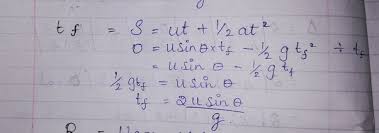 t f = S = ut + 1/2 at²
0 = u sinθ x tf - 1/2 g tf² ÷ tf
= u sin θ - 1/2 g tf
1/2 gtf = u sin θ
tf = 2u sin θ
g.